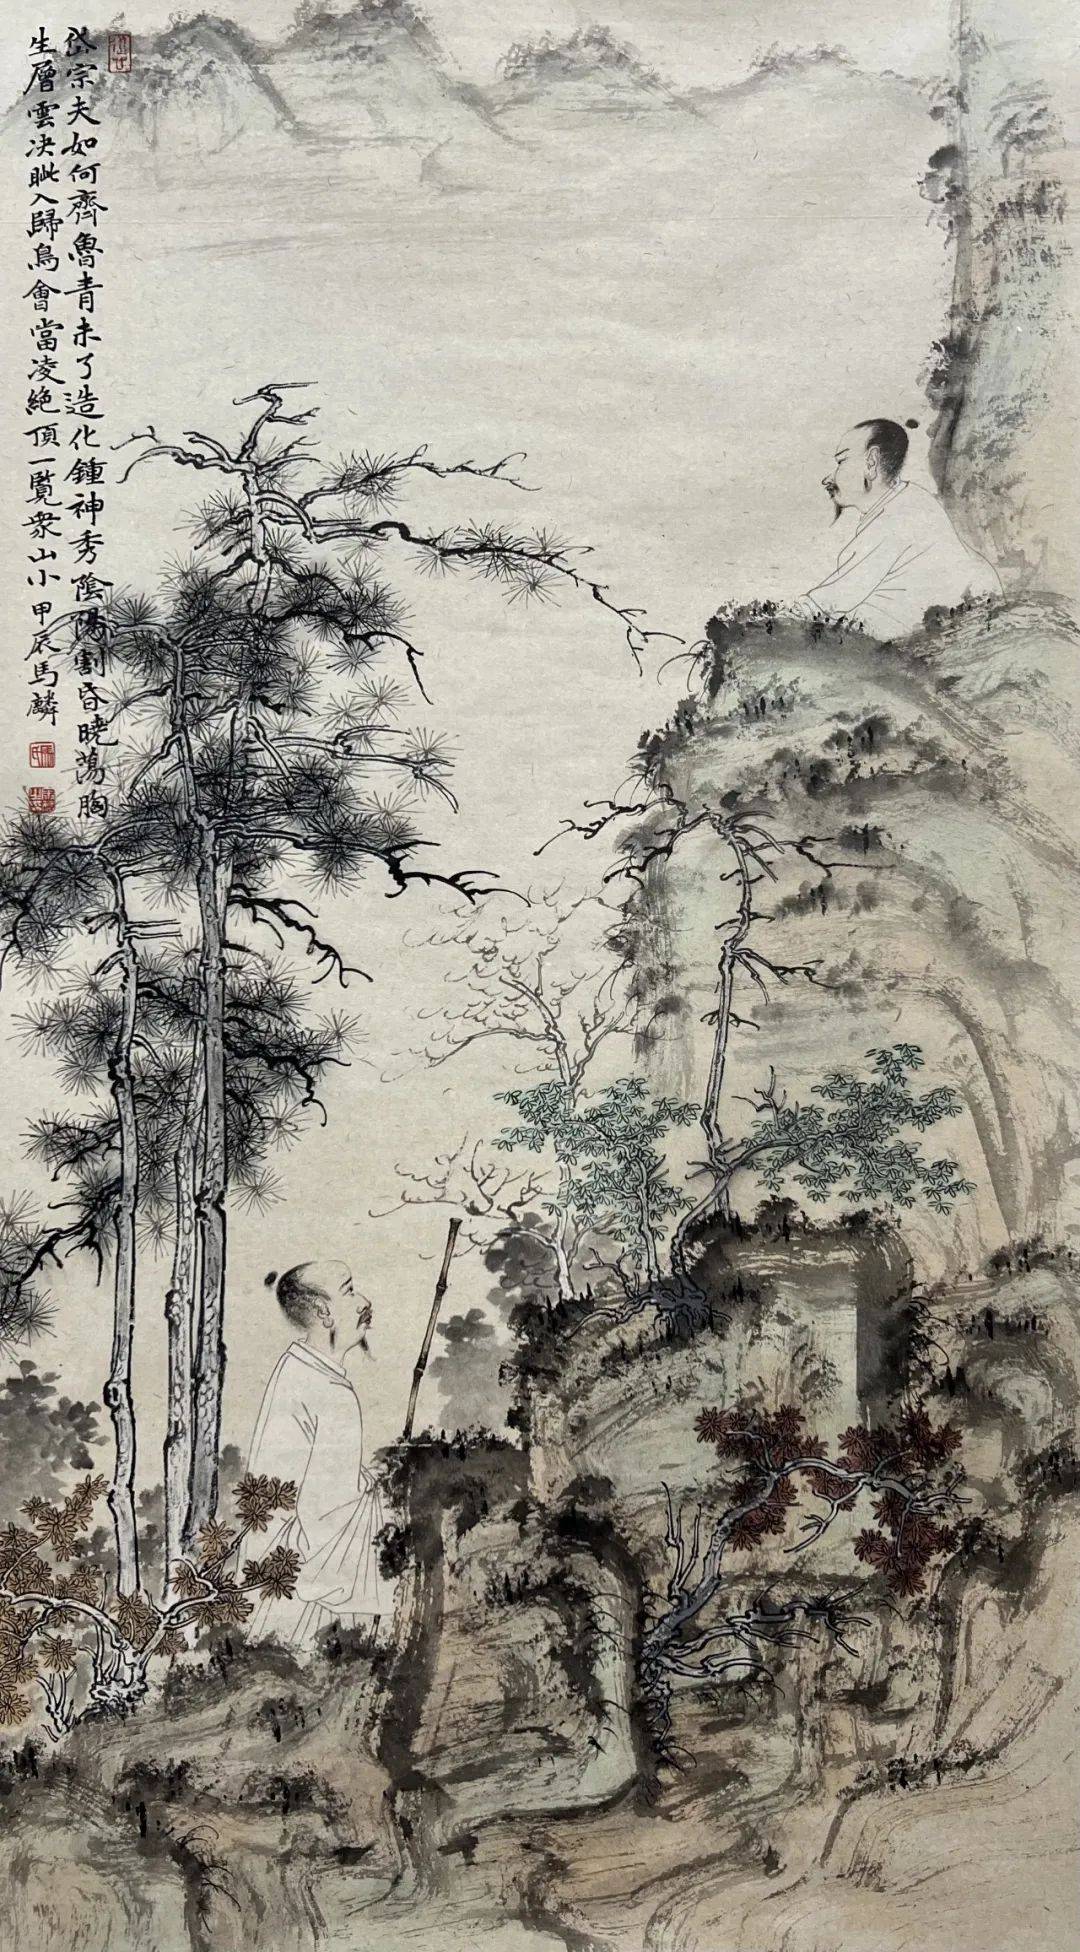 岱宗夫如何齊魯青未了造化鍾神秀陰陽割昏曉蕩胸
生層雲決眦入歸鳥會當凌絕頂一覽衆山小甲辰馬麟